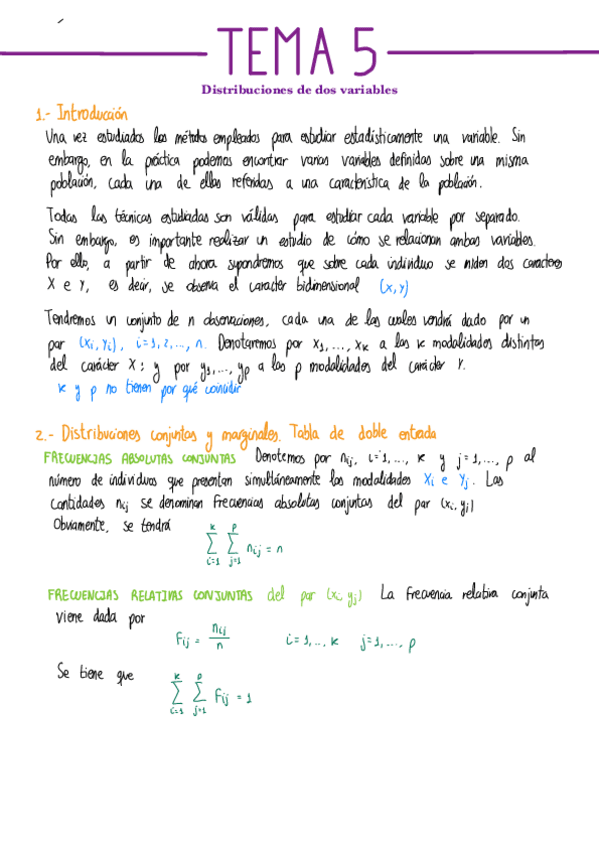 TEMA 5
Distribuciones de dos variables
1.- Introducción
Una vez estudiados los métodos empleados para estudiar estadísticamente una variable. Sin
embargo, en la práctica podemos encontrar varias variables definidas sobre una misma
población, cada una de ellas referidas a una característica de la población.
Todas las técnicas estudiadas son válidas para estudiar cada variable por separado.
Sin embargo, es importante realizar un estudio de cómo se relacionan ambas variables.
Por ello, a partir de ahora supondremos que sobre cada individuo se miden dos caracteres
X e Y, es decir, se observa el caracter bidimensional (X,Y)
Tendremos un conjunto de n observaciones, cada una de las cuales vendrá dado por un
par (xi, yi), i=1,2,..., n. Denotaremos por x1,..., xk a las k modalidades distintas
del carácter X; y por y1,..., yp a las p modalidades del carácter Y.
k y p no tienen por qué coincidir
2.- Distribuciones conjuntas y marginales. Tabla de doble entrada
FRECUENCIAS ABSOLUTAS CONJUNTAS Denotemos por nij, i=1,..., k y j=1,..., p al
número de individuos que presentan simultáneamente las modalidades Xi e Yj. Las
cantidades nij se denominan frecuencias absolutas conjuntas del par (xi, yj)
Obviamente, se tendrá ∑_{i=1}^{k} ∑_{j=1}^{p} nij = n
FRECUENCIAS RELATIVAS CONJUNTAS del par (xi, yj) La frecuencia relativa conjunta
viene dada por
fij = nij/n i=1,..., k j=1,..., p
Se tiene que ∑_{i=1}^{k} ∑_{j=1}^{p} fij = 1